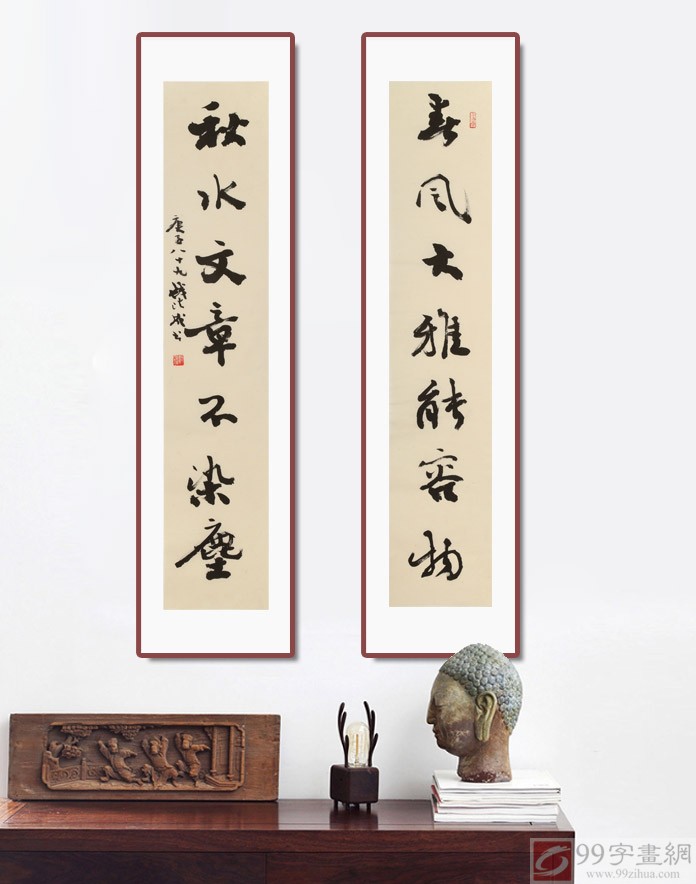 春風大雅能容物
秋水文章不染塵
庚子八十九
99字畫網
www.99zihua.com